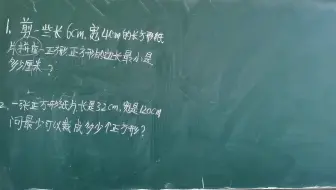 1. 剪一些长6cm,宽4cm的长方形纸
片拼成一正方形,正方形的边长最小是
多少厘米?
2. 一张正方形纸片长是32cm,宽是20cm
问最少可以裁成多少个正方形?